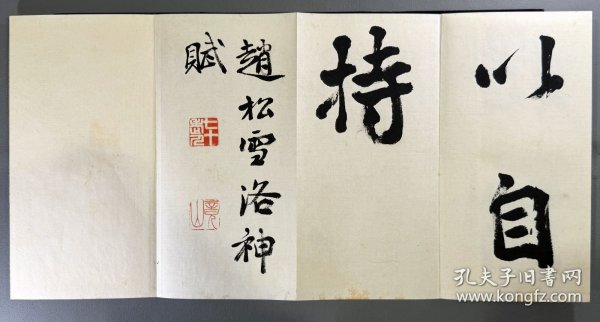 以自
持
趙松雪洛神
賦
孔夫子旧书网
www.kongfz.com